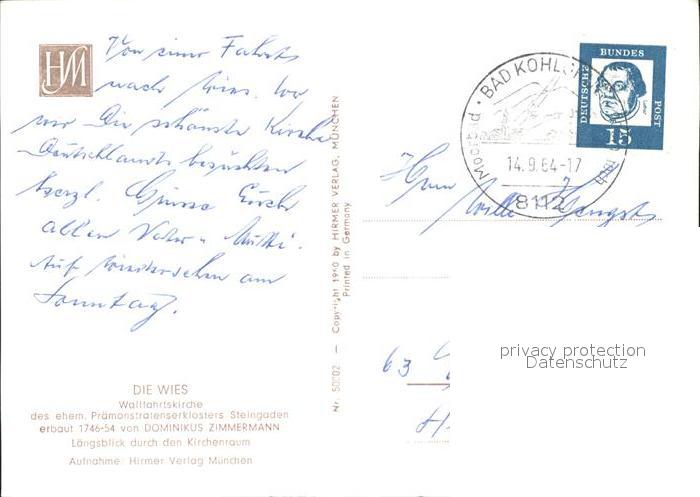 HM
Von einer Fahrt
nach Wies. Wo
wir die schönste Kirche
Deutschlands besuchten
herzl. Grüsse Euch
allen Vater u. Mutti.
Auf Wiedersehen am
Sonntag.
DIE WIES
Wallfahrtskirche
des ehem. Prämonstratenserklosters Steingaden
erbaut 1746-54 von DOMINIKUS ZIMMERMANN
Längsblick durch den Kirchenraum
Aufnahme: Hirmer Verlag München
Nr. 50002 — Copyright 1960 by HIRMER VERLAG, MÜNCHEN
Printed in Germany
BAD KOHLGRUB
14.9.64-17
8112
DEUTSCHE
BUNDES
POST
15
Herrn
63
privacy protection
Datenschutz